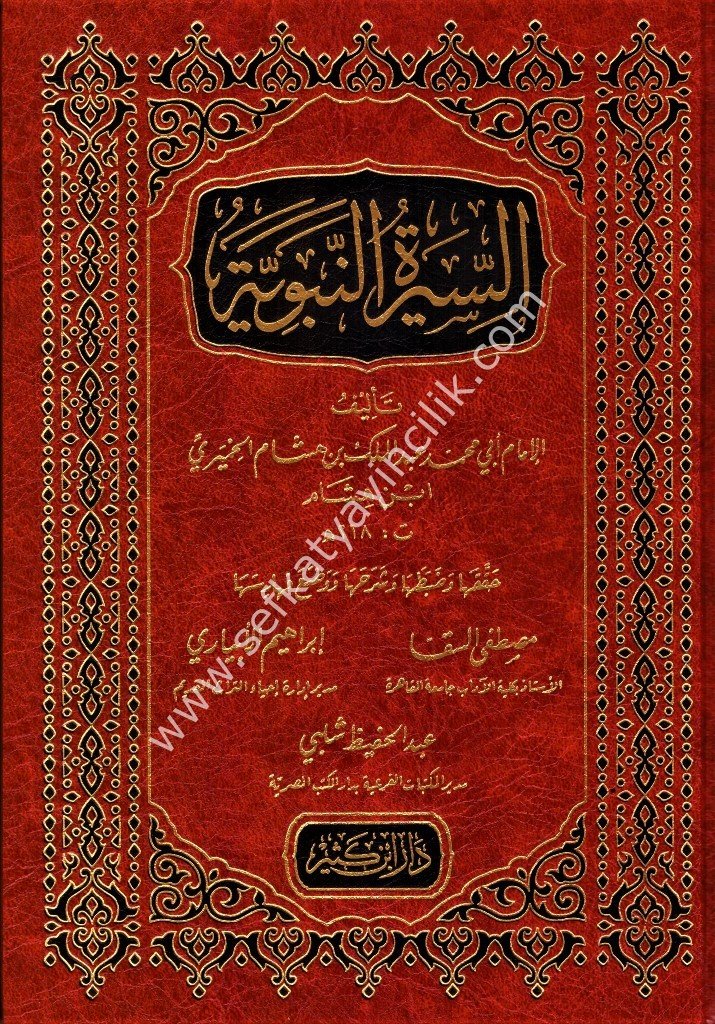 السِّيرَةُ النَّبَوِيَّةُ
تأليفُ
الإمام أبي محمد عبد الملك بن هشام الحميري
ابن هشام
ت: ٢١٨ هـ
حققها وضبطها وشرحها ووضع فهارسها
مصطفى السقا
إبراهيم الأبياري
الأستاذ بكلية الآداب جامعة القاهرة
مدير إدارة إحياء التراث القديم
عبد الحفيظ شلبي
مدير المكتبات الفرعية بدار الكتب المصرية
دار ابن كثير
www.sefkatyayincilik.com